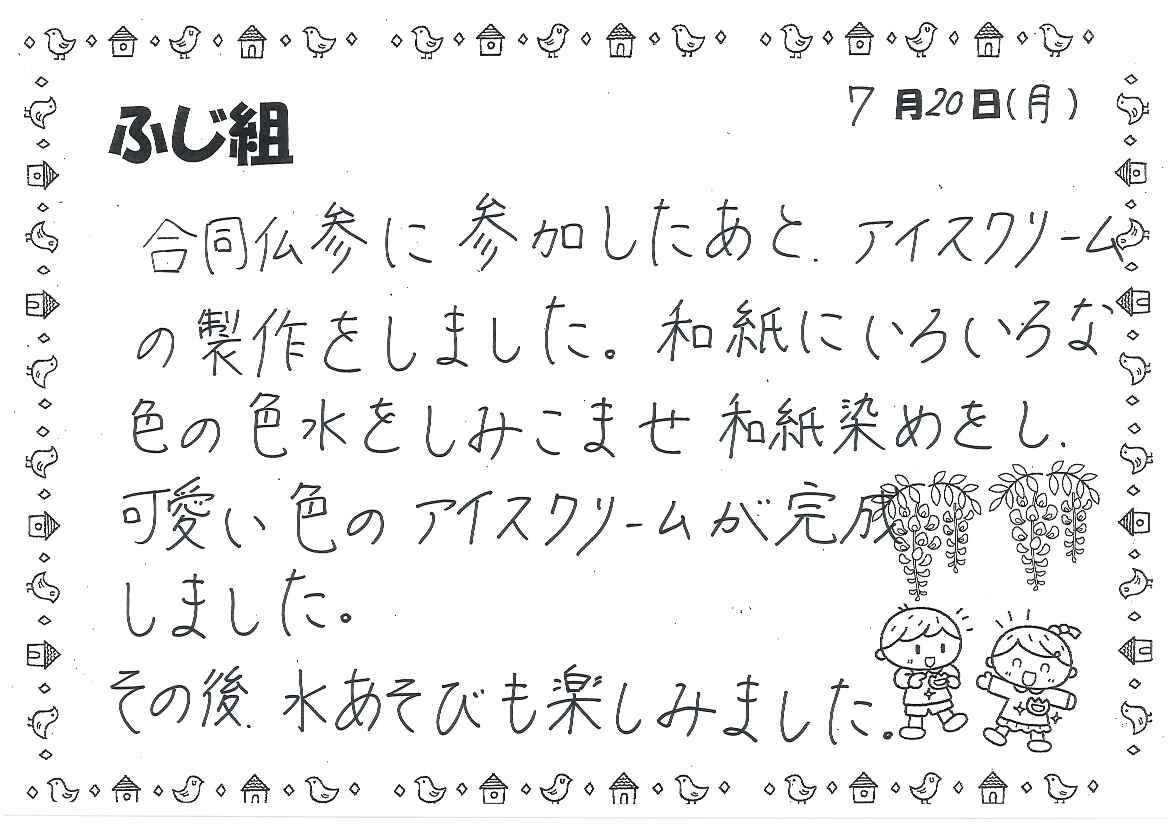 ふじ組
7月20日(月)
合同仏参に参加したあと、アイスクリーム
の製作をしました。和紙にいろいろな
色の色水をしみこませ和紙染めをし、
可愛い色のアイスクリームが完成
しました。
その後、水あそびも楽しみました。